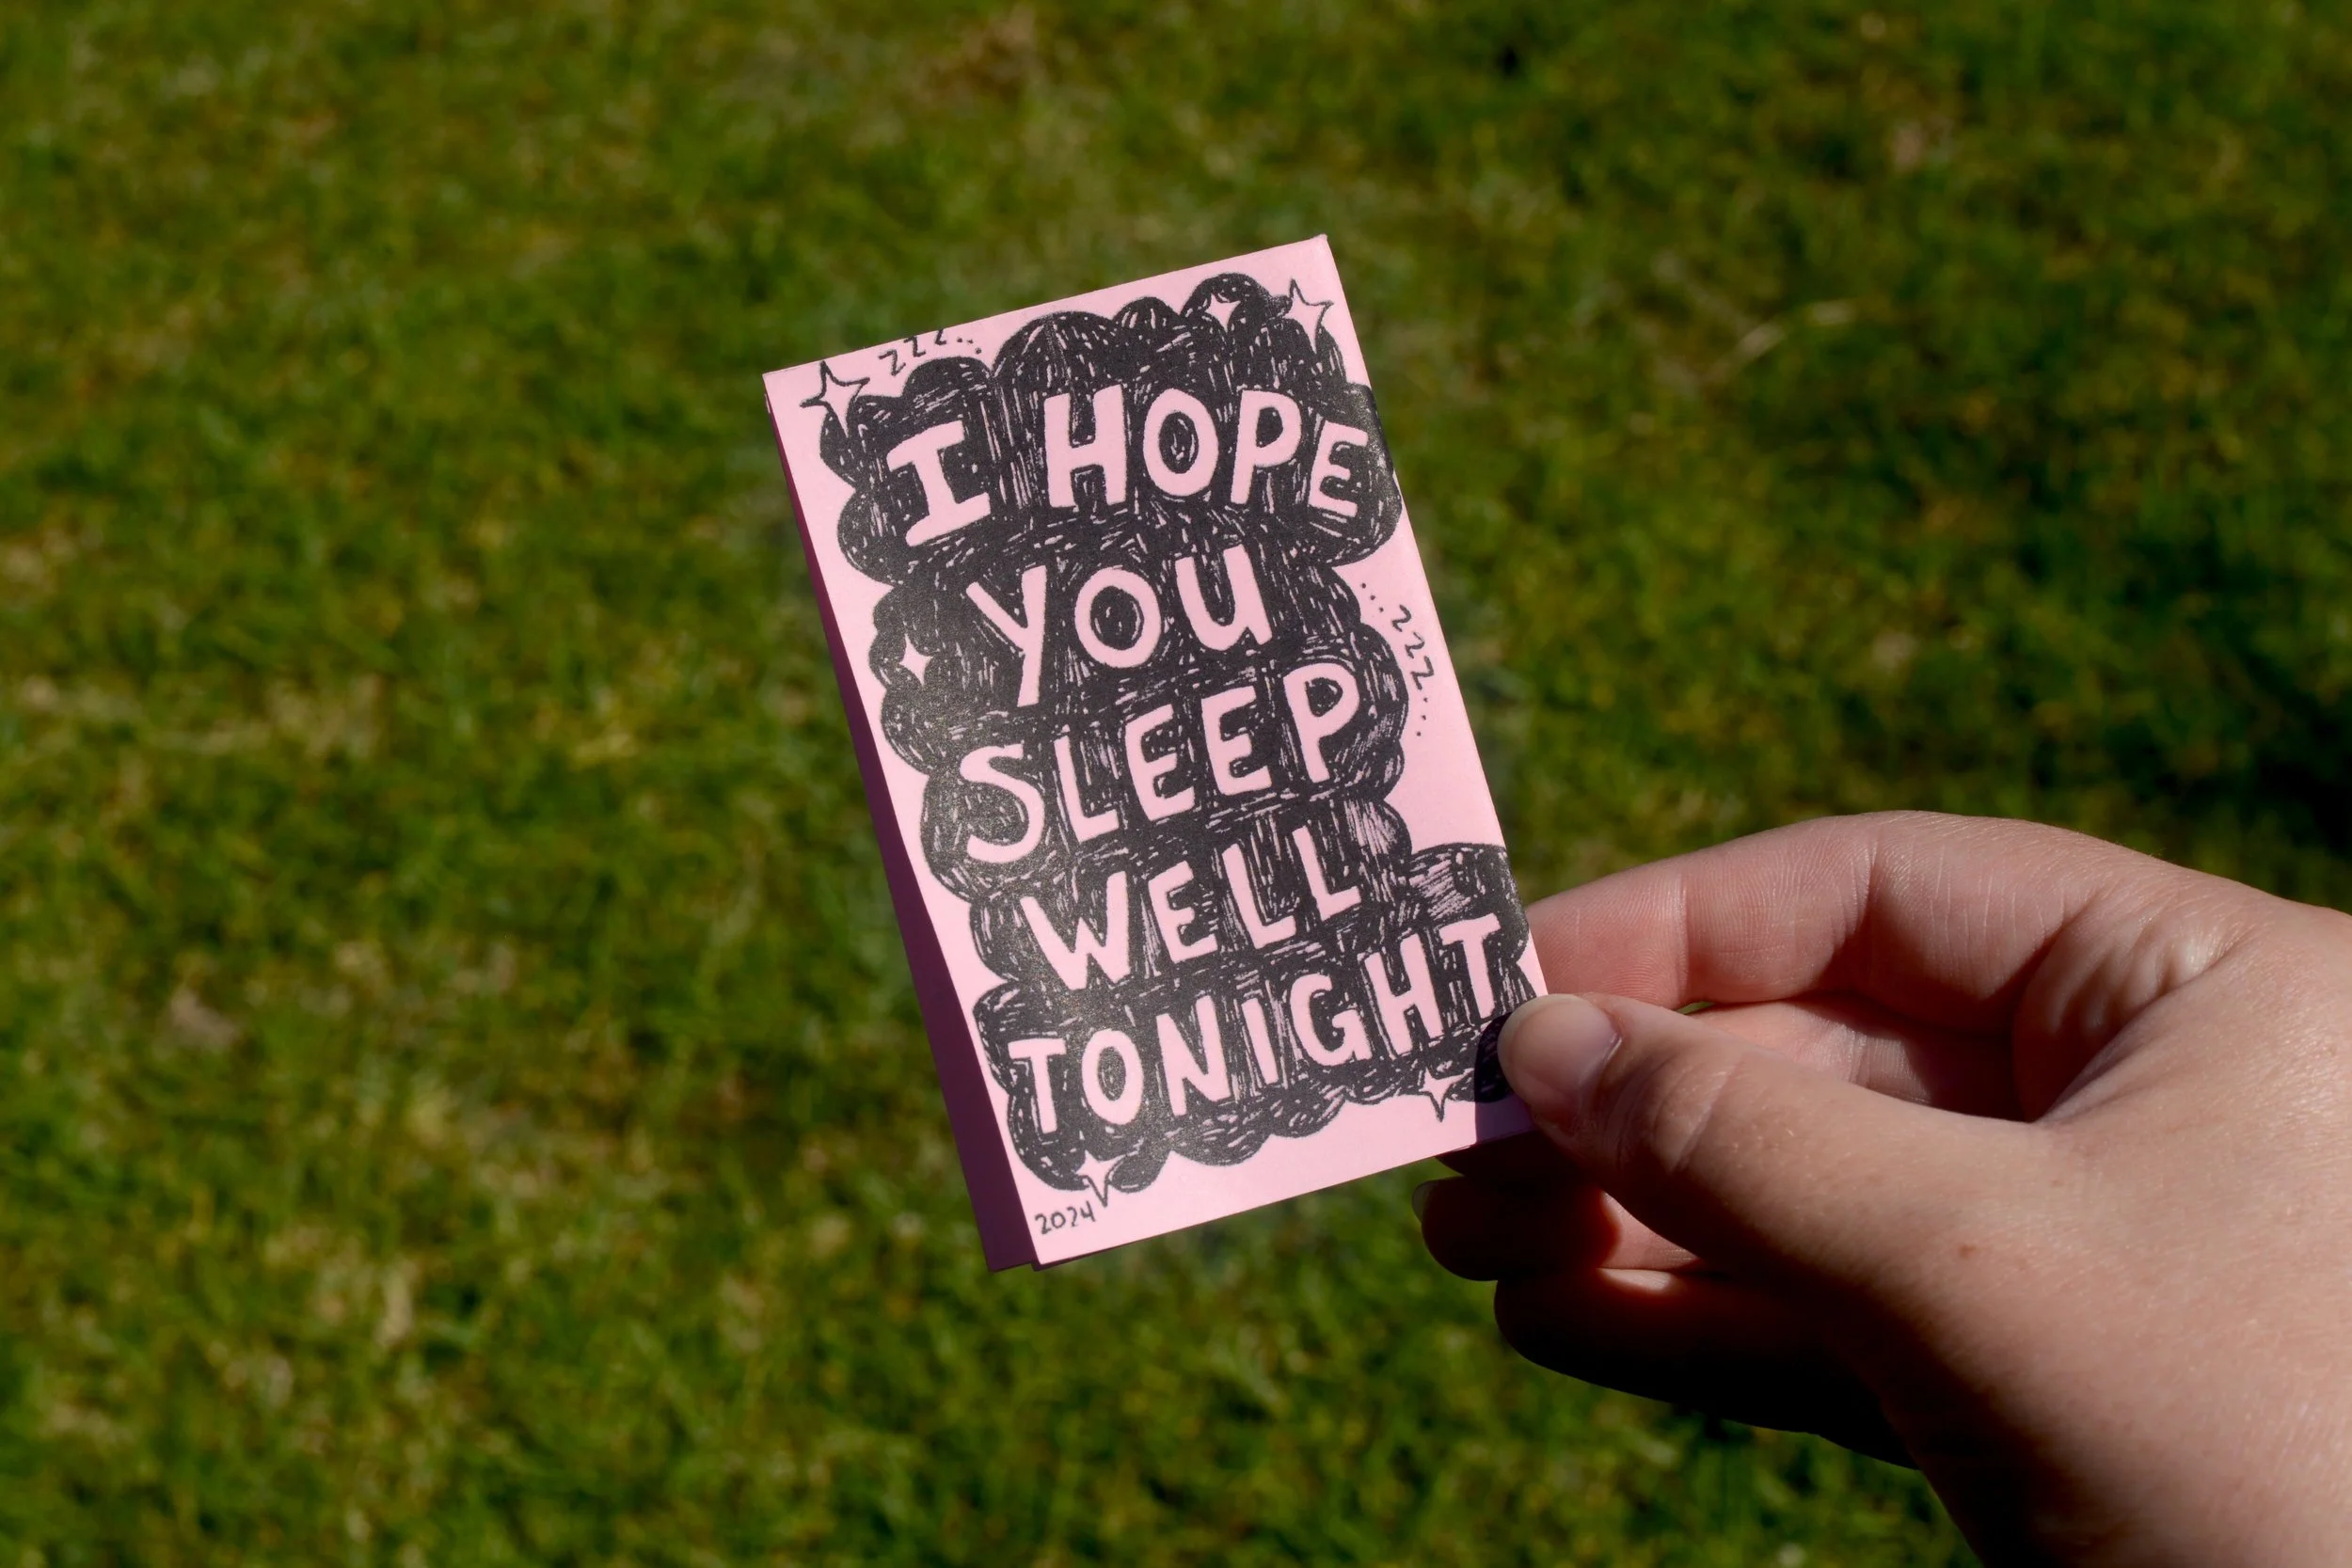 zzz...
I HOPE
YOU
...zzz...
SLEEP
WELL
TONIGHT
2024